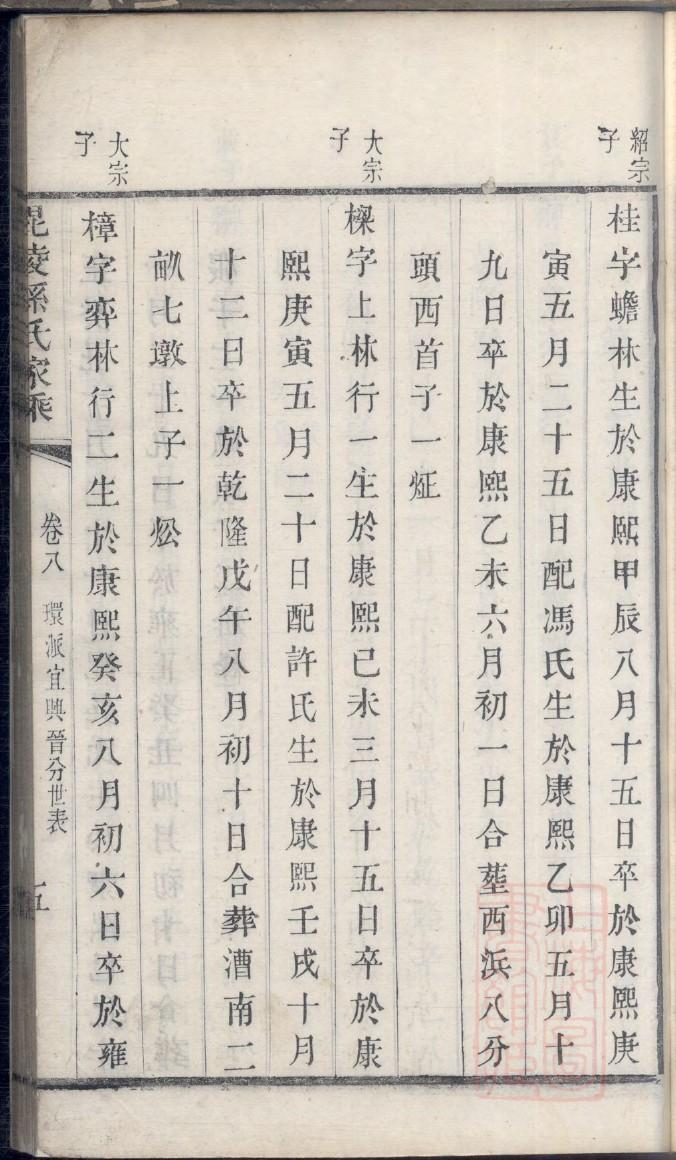 紹宗
子
桂字蟾林生於康熙甲辰八月十五日卒於康熙庚
寅五月二十五日配馮氏生於康熙乙卯五月十
九日卒於康熙乙未六月初一日合塟西浜八分
頭西首子一炡
大宗
子
樑字上林行一生於康熙已未三月十五日卒於康
熙庚寅五月二十日配許氏生於康熙壬戌十月
十二日卒於乾隆戊午八月初十日合葬漕南二
畝七墩上子一炂
大宗
子
樟字弈林行二生於康熙癸亥八月初六日卒於雍
毘陵孫氏家乘
卷八 環派宜興晉分世表
五